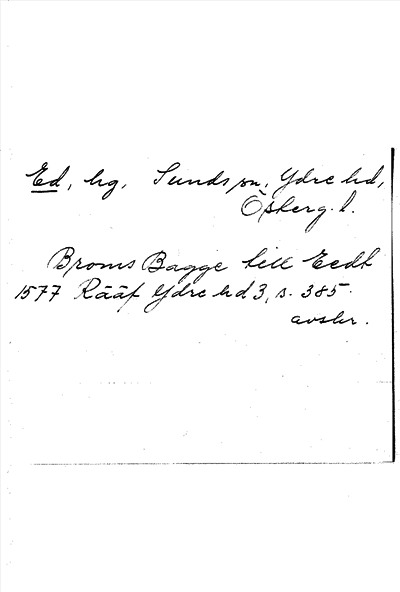 Ed, hg, Sunds sn, Ydre hd,
Österg. l.
Broms Bagge till Eedt
1577 Rääf Ydre hd 3, s. 385.
avskr.